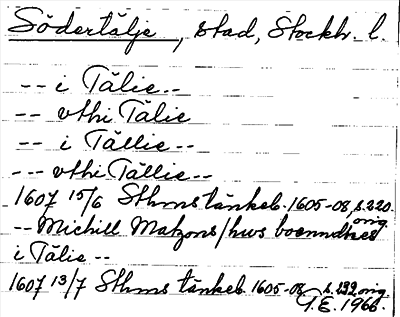 Södertälje, stad, Stockh. l.
-- i Tälie --
-- vthi Tälie
-- i Tällie --
--- vthi Tällie --
1607 15/6 Sthms tänkeb. 1605-08, s. 220. orig
-- Michill Matzons / hws
i Tälie --
1607 13/7 Sthms tänkeb. 1605-08 s. 232 orig
G.E. 1966.